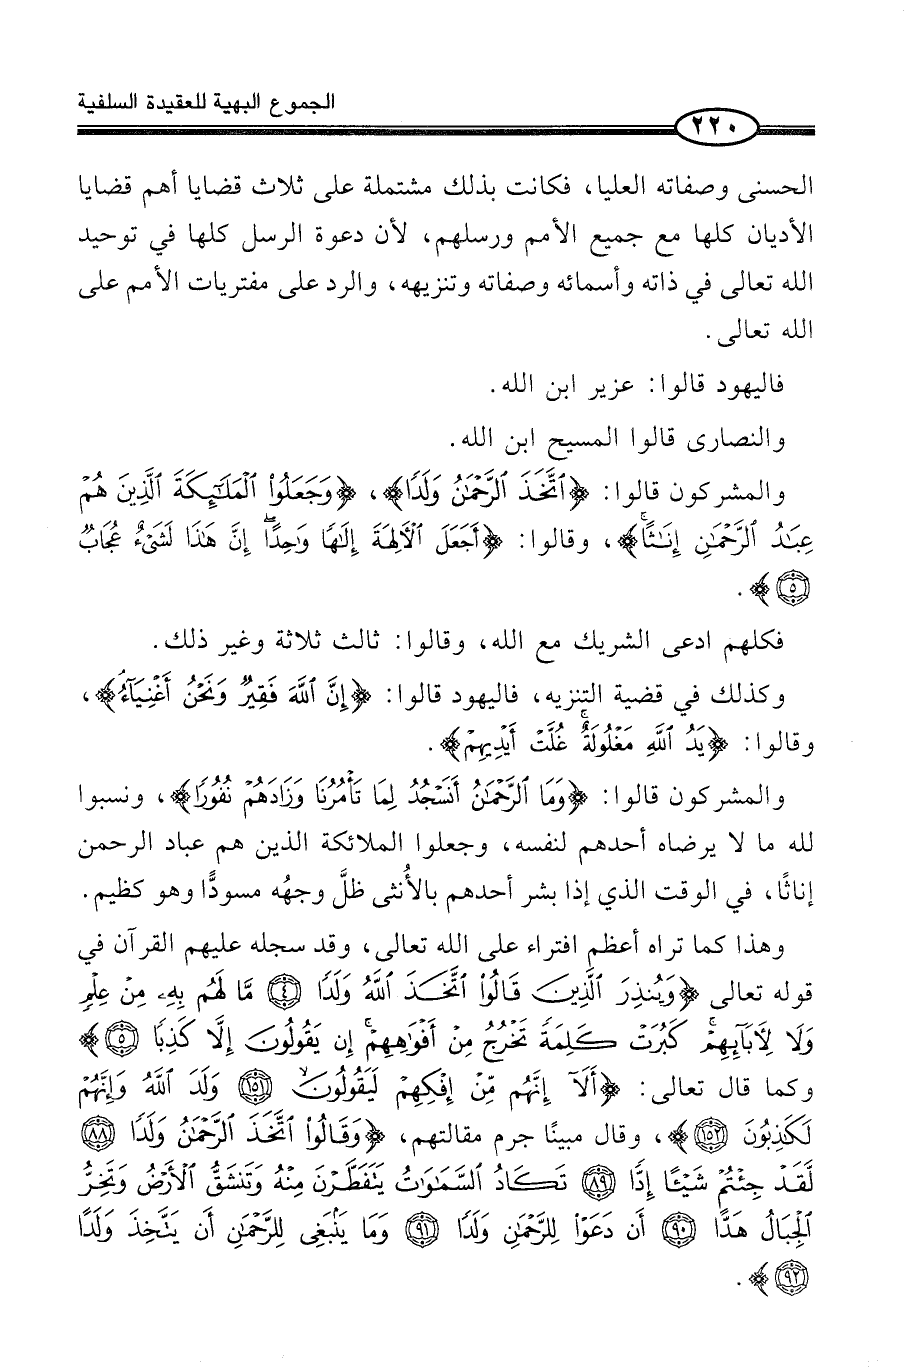 الجموع البهية للعقيدة السلفية
٢٢٠
الحسنى وصفاته العليا، فكانت بذلك مشتملة على ثلاث قضايا أهم قضايا
الأديان كلها مع جميع الأمم ورسلهم، لأن دعوة الرسل كلها في توحيد
الله تعالى في ذاته وأسمائه وصفاته وتنزيهه، والرد على مفتريات الأمم على
الله تعالى.
فاليهود قالوا: عزير ابن الله.
والنصارى قالوا المسيح ابن الله.
والمشركون قالوا: ﴿ٱتَّخَذَ ٱلرَّحْمَٰنُ وَلَدًا﴾، ﴿وَجَعَلُوا۟ ٱلْمَلَٰٓئِكَةَ ٱلَّذِينَ هُمْ
عِبَٰدُ ٱلرَّحْمَٰنِ إِنَٰثًا ۚ﴾، وقالوا: ﴿أَجَعَلَ ٱلْءَالِهَةَ إِلَٰهًا وَٰحِدًا ۖ إِنَّ هَٰذَا لَشَىْءٌ عُجَابٌ
٥﴾.
فكلهم ادعى الشريك مع الله، وقالوا: ثالث ثلاثة وغير ذلك.
وكذلك في قضية التنزيه، فاليهود قالوا: ﴿إِنَّ ٱللَّهَ فَقِيرٌ وَنَحْنُ أَغْنِيَآءُ ۘ﴾،
وقالوا: ﴿يَدُ ٱللَّهِ مَغْلُولَةٌ ۚ غُلَّتْ أَيْدِيهِمْ﴾.
والمشركون قالوا: ﴿وَمَا ٱلرَّحْمَٰنُ أَنَسْجُدُ لِمَا تَأْمُرُنَا وَزَادَهُمْ نُفُورًا﴾، ونسبوا
لله ما لا يرضاه أحدهم لنفسه، وجعلوا الملائكة الذين هم عباد الرحمن
إناثًا، في الوقت الذي إذا بشر أحدهم بالأُنثى ظلَّ وجهُه مسودًّا وهو كظيم.
وهذا كما تراه أعظم افتراء على الله تعالى، وقد سجله عليهم القرآن في
قوله تعالى ﴿وَيُنذِرَ ٱلَّذِينَ قَالُوا۟ ٱتَّخَذَ ٱللَّهُ وَلَدًا ٤ مَّا لَهُم بِهِۦ مِنْ عِلْمٍ
وَلَا لِءَابَآئِهِمْ ۚ كَبُرَتْ كَلِمَةً تَخْرُجُ مِنْ أَفْوَٰهِهِمْ ۚ إِن يَقُولُونَ إِلَّا كَذِبًا ٥﴾
وكما قال تعالى: ﴿أَلَآ إِنَّهُم مِّنْ إِفْكِهِمْ لَيَقُولُونَ ۙ ١٥١ وَلَدَ ٱللَّهُ وَإِنَّهُمْ
لَكَٰذِبُونَ ١٥٢﴾، وقال مبينًا جرم مقالتهم، ﴿وَقَالُوا۟ ٱتَّخَذَ ٱلرَّحْمَٰنُ وَلَدًا ٨٨
لَّقَدْ جِئْتُمْ شَيْـًٔا إِدًّا ٨٩ تَكَادُ ٱلسَّمَٰوَٰتُ يَتَفَطَّرْنَ مِنْهُ وَتَنشَقُّ ٱلْأَرْضُ وَتَخِرُّ
ٱلْجِبَالُ هَدًّا ٩٠ أَن دَعَوْا۟ لِلرَّحْمَٰنِ وَلَدًا ٩١ وَمَا يَنۢبَغِى لِلرَّحْمَٰنِ أَن يَتَّخِذَ وَلَدًا
٩٢﴾.